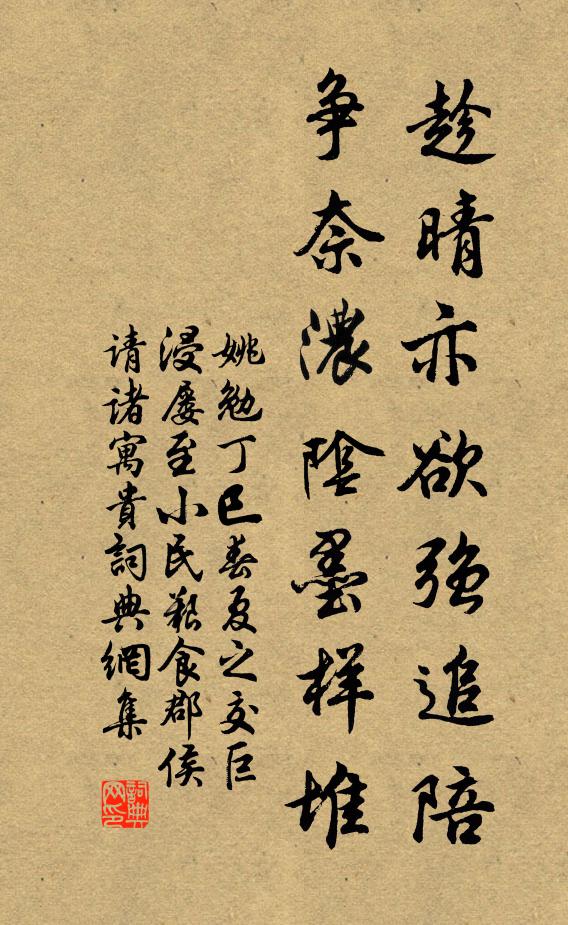 趁晴亦欲强追陪
争奈濃陰墨样堆
姚勉丁巳春夏之交巨
浸屡至小民艱食郡侯
请诸寓貴詞典網集
詞典
网印